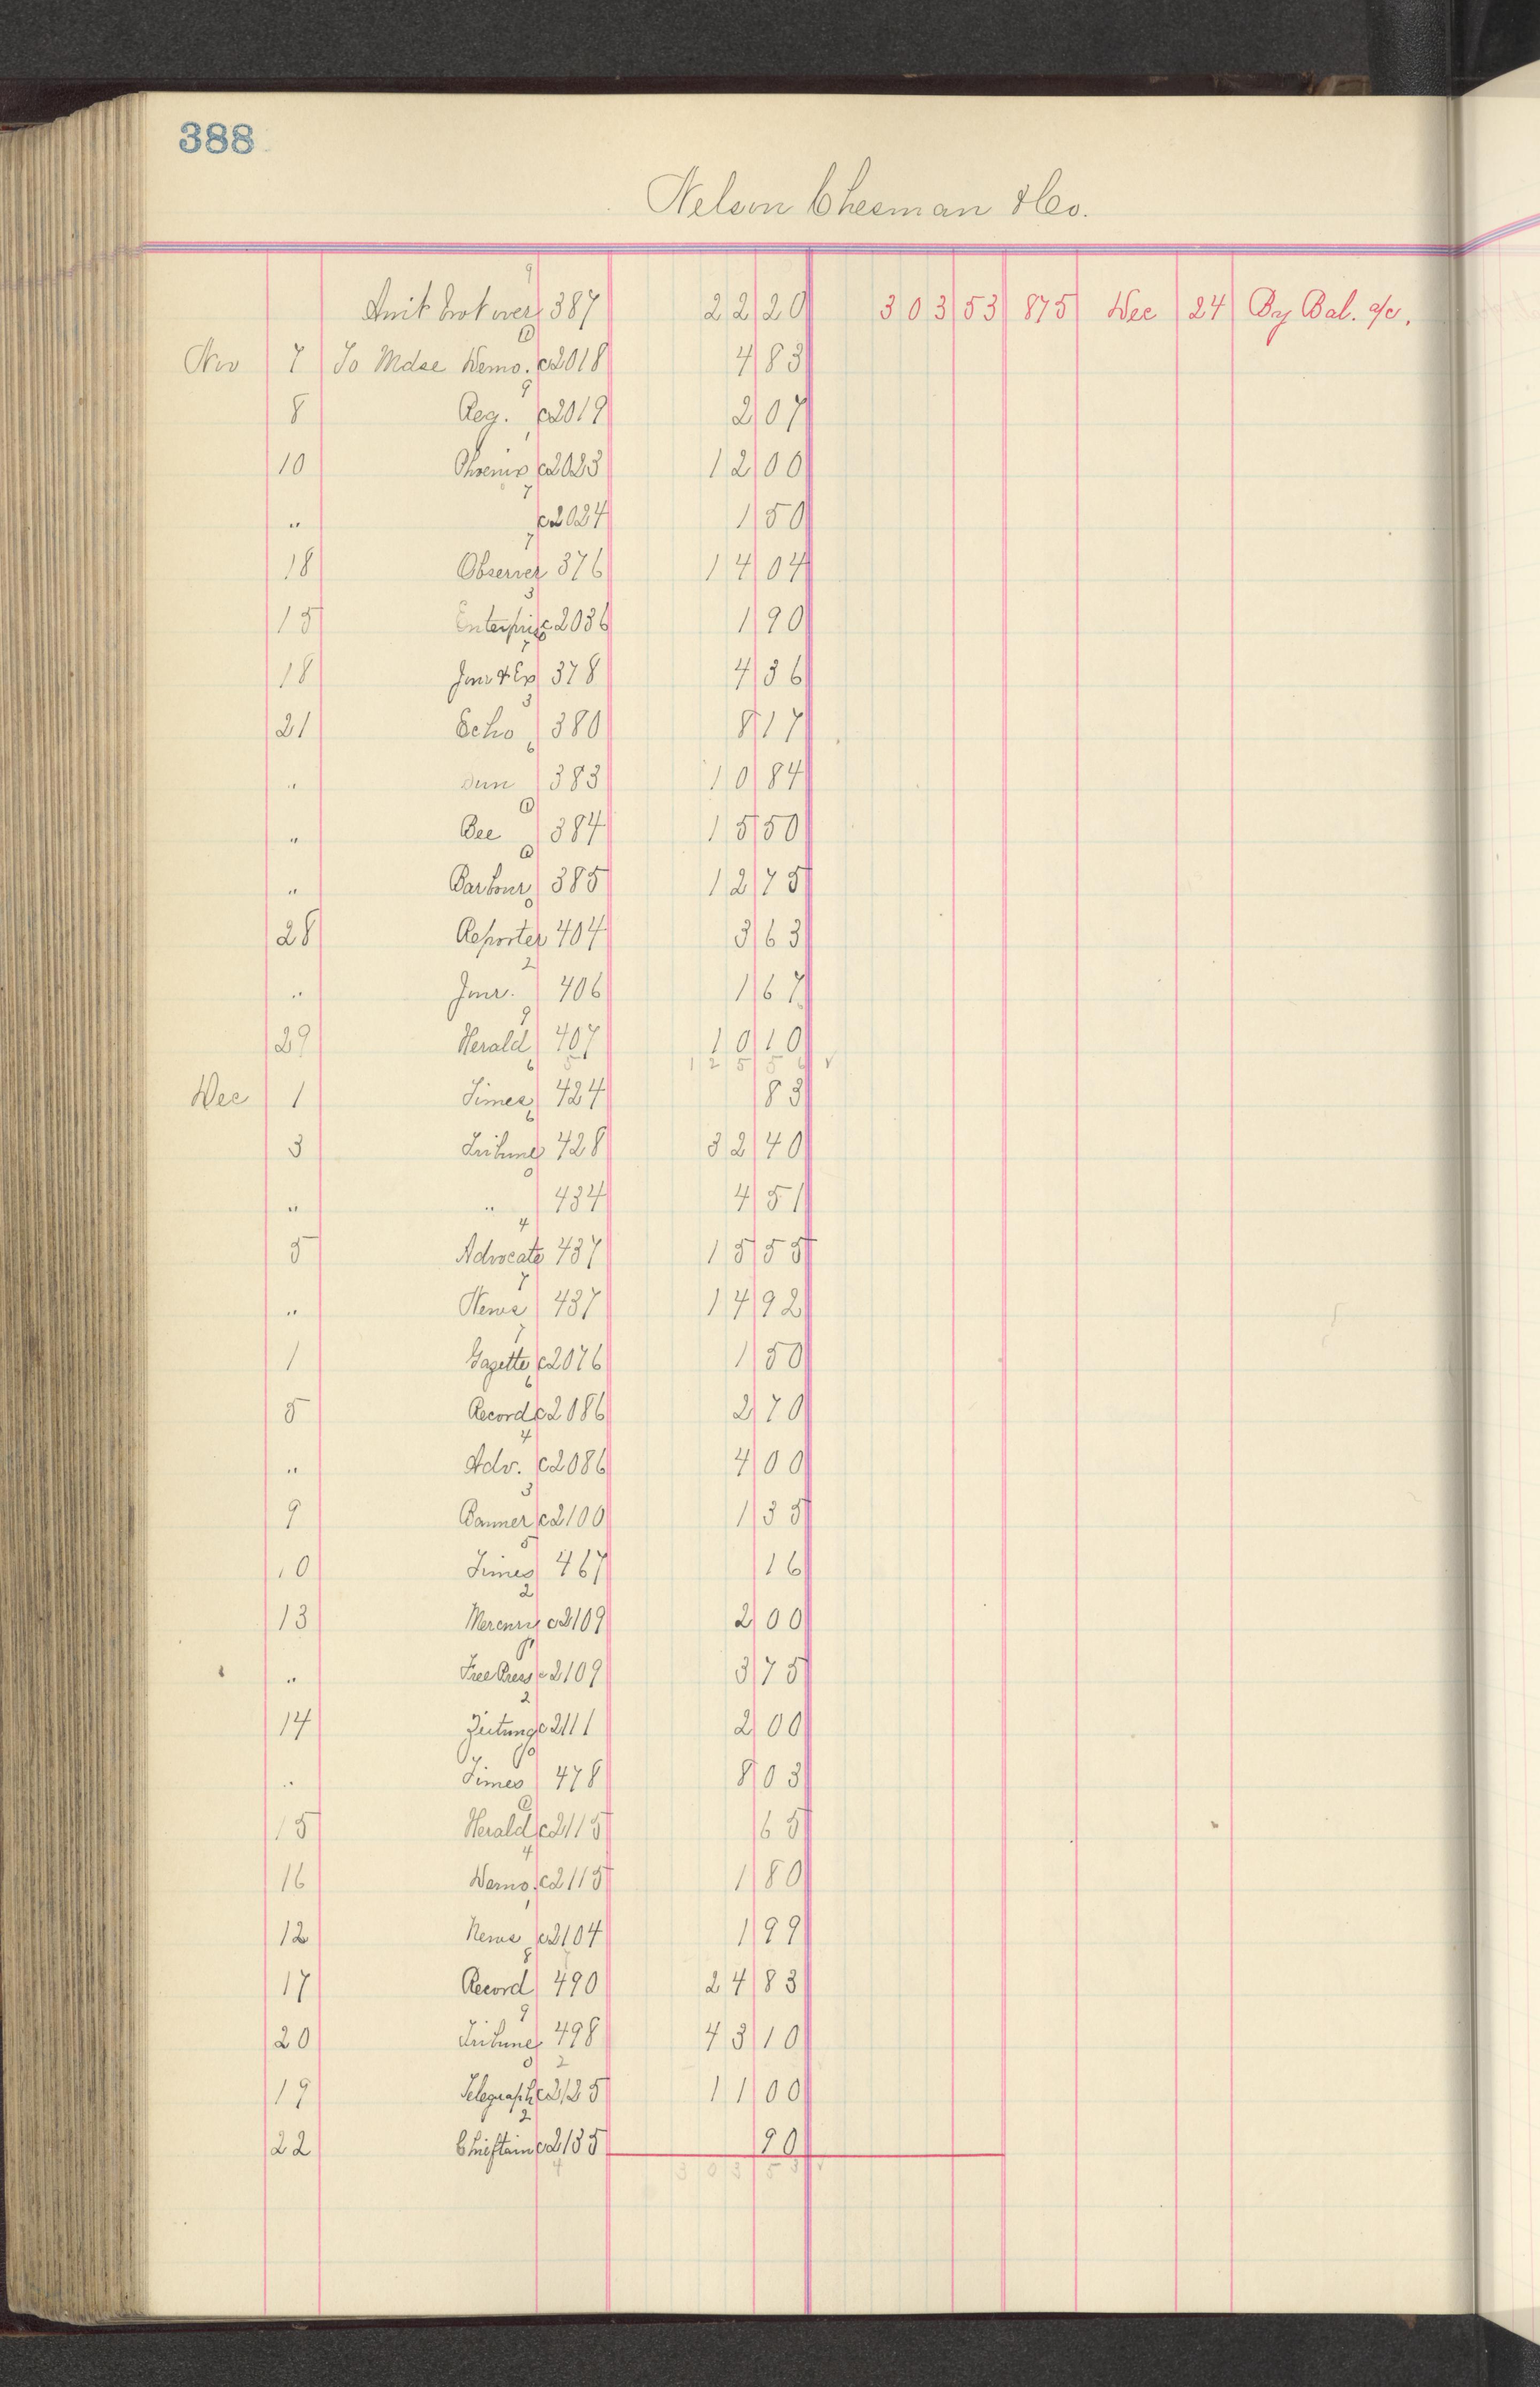 388
Nelson Chesman & Co.
9
Amt brot over 387 22 20 303 53 875 Dec 24 By Bal. a/c.
1
Nov 7 To Mdse Demo. c2018 4 83
9
8 Reg. c2019 2 07
1
10 Phoenix c2023 12 00
7
" c2024 1 50
7
18 Observer 376 14 04
3
15 Enterprise c2036 1 90
7
18 Jour & Ex 378 4 36
3
21 Echo 380 8 17
6
" Sun 383 10 84
1
" Bee 384 15 50
1
" Barbour 385 12 75
0
28 Reporter 404 3 63
2
" Jour. 406 1 67
9
29 Herald 407 10 10
6 5 125 56 √
Dec 1 Times 424 83
6
3 Tribune 428 32 40
0
" " 434 4 51
4
5 Advocate 437 15 55
7
" News 437 14 92
7
1 Gazette c2076 1 50
6
5 Record c2086 2 70
4
" Adv. c2086 4 00
3
9 Banner c2100 1 35
5
10 Times 467 16
2
13 Mercury c2109 2 00
" Free Press c2109 3 75
2
14 Zeitung c2111 2 00
" Times 478 8 03
15 Herald c2115 65
4
16 Demo. c2115 1 80
1
12 News c2104 1 99
8
17 Record 490 24 83
9
20 Tribune 498 43 10
0 2
19 Telegraph c2125 11 00
2
22 Chieftain c2135 90
4 303 53 √